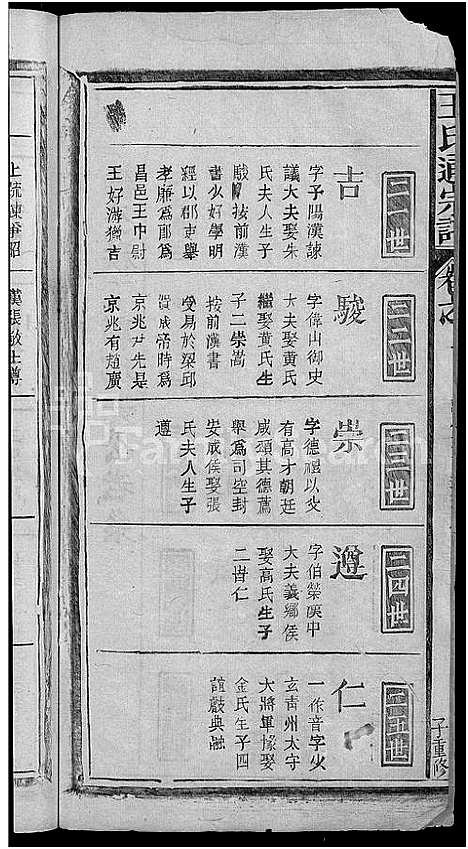 王氏通宗譜
卷之
二一世
吉
字子陽漢諫
議大夫娶朱
氏夫人生子
駿 按前漢
書少好學明
經以郡吏舉
孝廉為郞為
昌邑王中尉
王好游獵吉
二二世
駿
字偉山御史
大夫娶黃氏
繼娶黃氏生
子二崇嵩
按前漢書
受易於梁邱
賀成帝時為
京兆尹先是
京兆有趙廣
二三世
崇
字德禮以父
有高才朝廷
咸頌其德薦
舉為司空封
安成侯娶張
氏夫人生子
遵
二四世
遵
字伯榮漢中
大夫義鄉侯
娶高氏生子
二峕仁
二五世
仁
一作音字少
玄青州太守
大將軍掾娶
金氏生子四
誼叡典融
子重修
上疏諫爭昭
漢張敞王尊